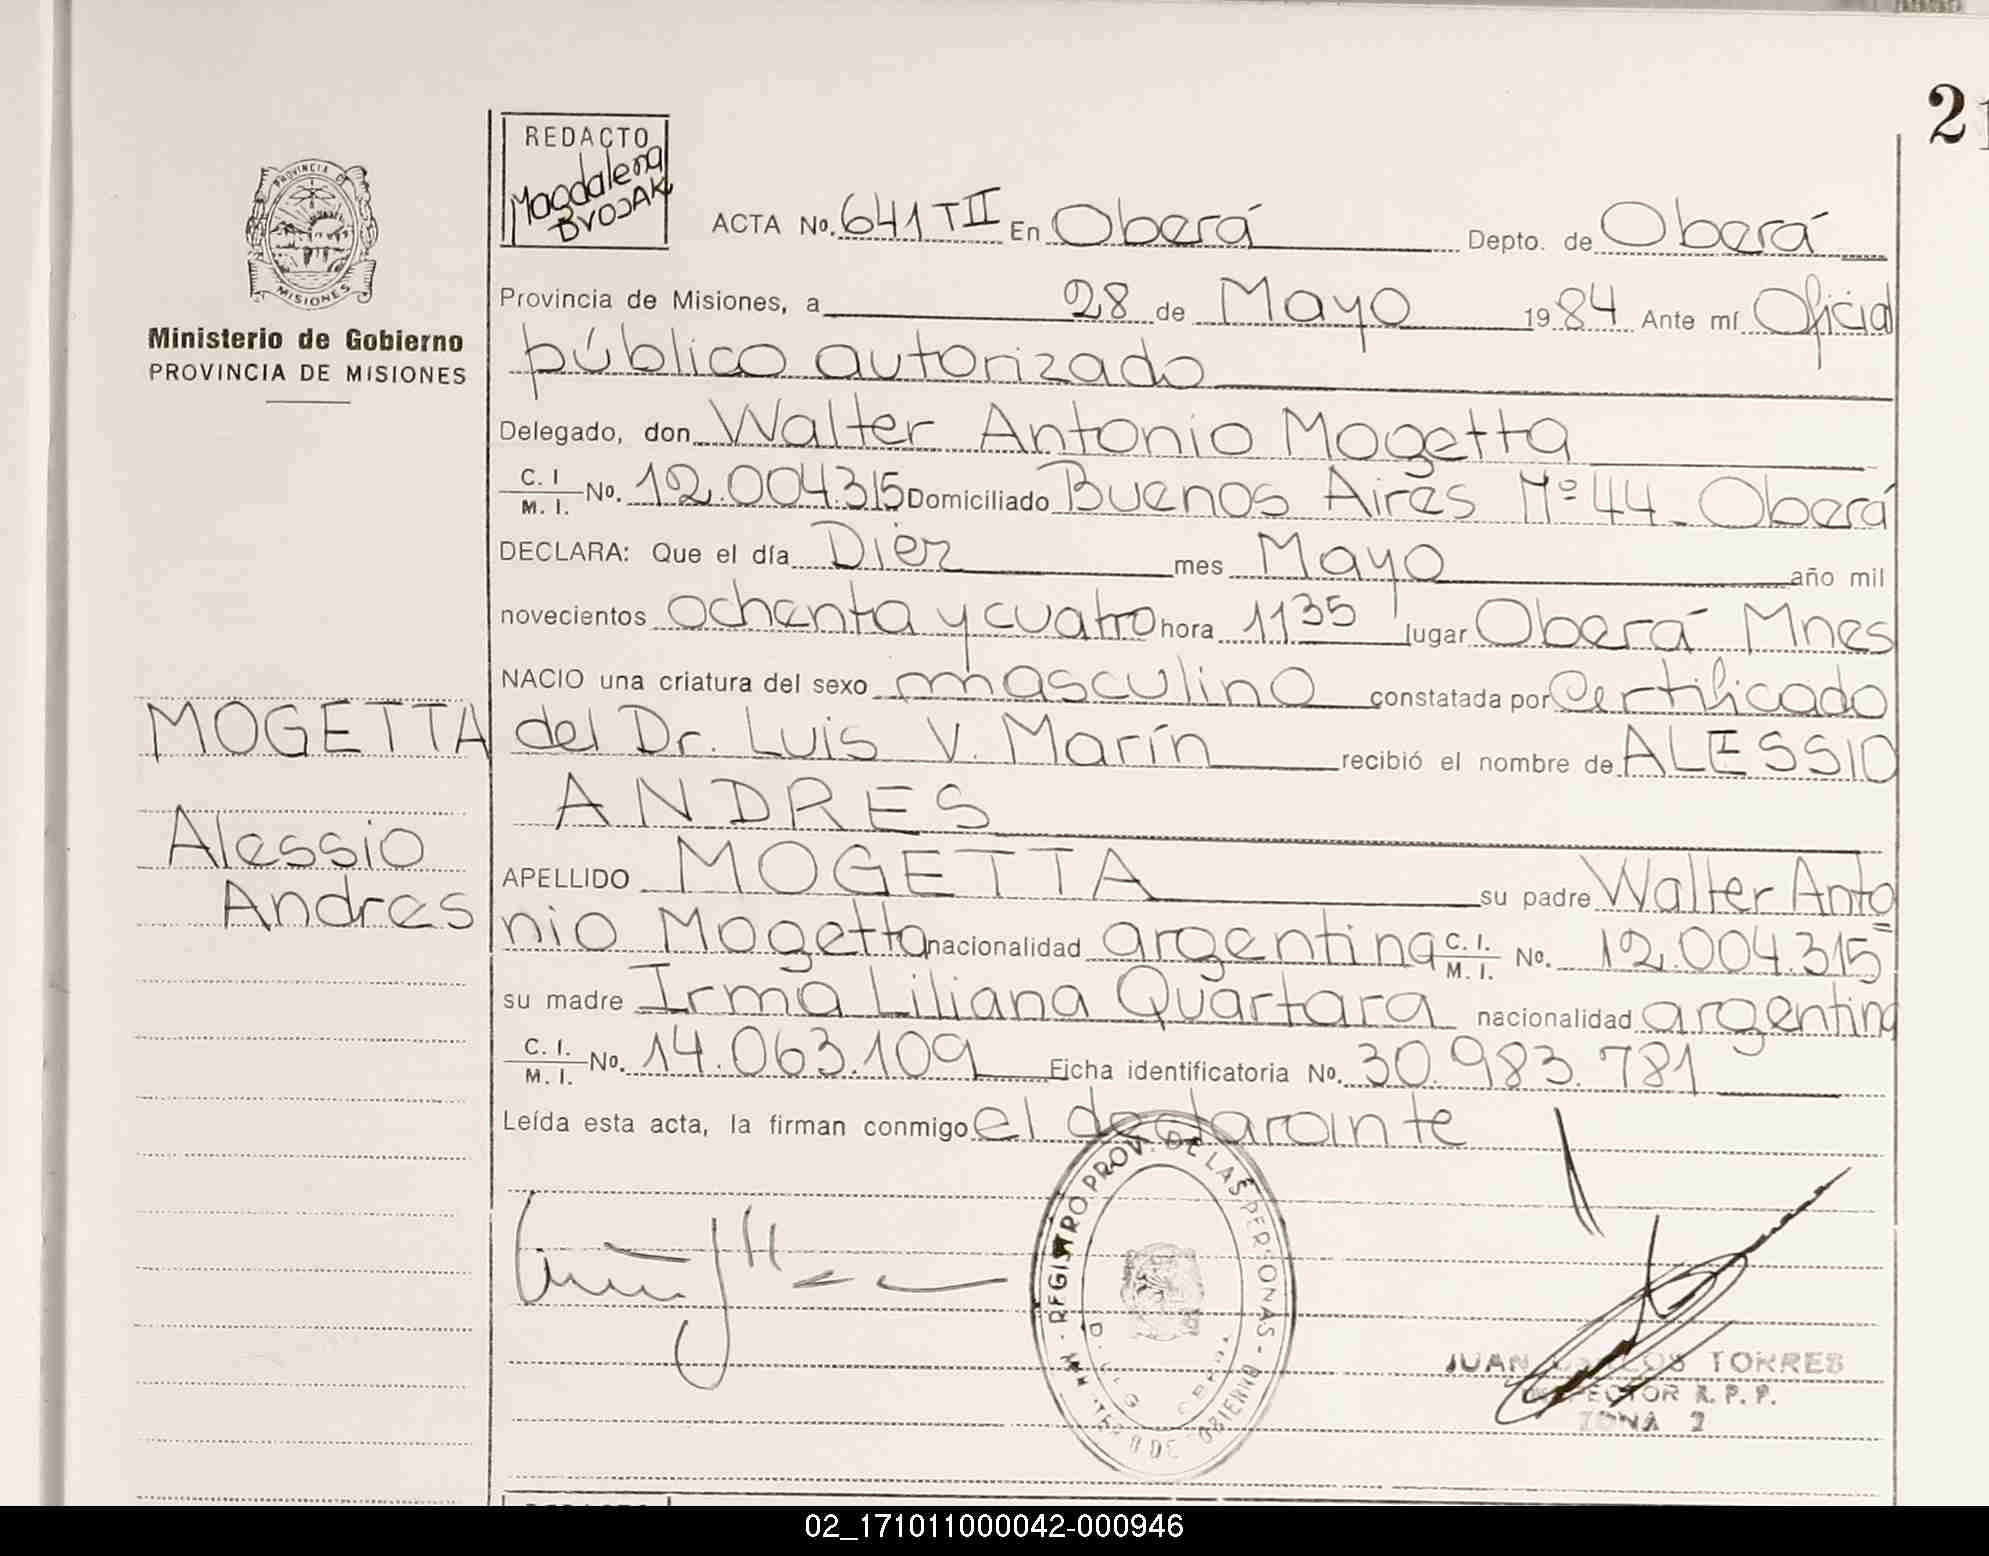 21
PROVINCIA DE
MISIONES
Ministerio de Gobierno
PROVINCIA DE MISIONES
MOGETTA
Alessio
Andres
REDACTO
Magdalena
ACTA No. 641 T II En Oberá Depto. de Oberá
Provincia de Misiones, a 28 de Mayo 1984 Ante mí Oficial
público autorizado
Delegado, don Walter Antonio Mogetta
C. I / M. I. No. 12.004.315 Domiciliado Buenos Aires Nº 44 - Oberá
DECLARA: Que el día Diez mes Mayo año mil
novecientos ochenta y cuatro hora 11 35 lugar Oberá Mnes
NACIO una criatura del sexo masculino constatada por Certificado
del Dr. Luis V. Marín recibió el nombre de ALESSIO
ANDRES
APELLIDO MOGETTA su padre Walter Anto
nio Mogetta nacionalidad argentina C. I. / M. I. No. 12.004.315
su madre Irma Liliana Quartara nacionalidad argentina
C. I. / M. I. No. 14.063.109 Ficha identificatoria No. 30.983.781
Leída esta acta, la firman conmigo el declarante
REGISTRO PROV. DE LAS PERSONAS
JUAN CARLOS TORRES
INSPECTOR R. P. P.
ZONA 2
02_171011000042-000946